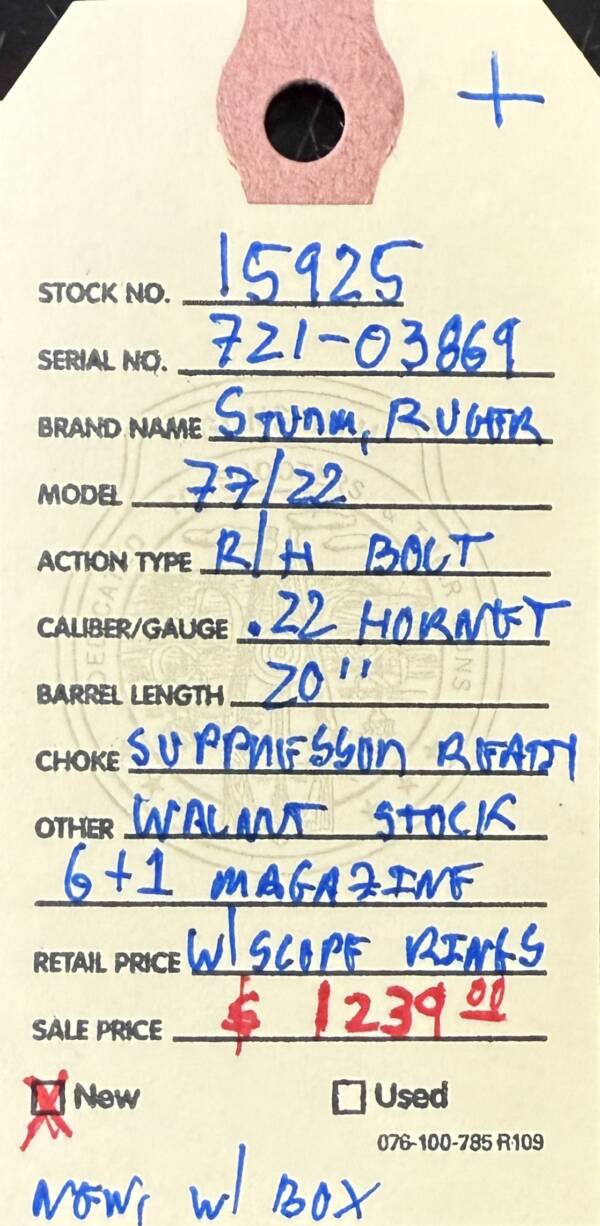 +
STOCK NO. 15925
SERIAL NO. 721-03869
BRAND NAME STURM, RUGER
MODEL 77/22
ACTION TYPE R/H BOLT
CALIBER/GAUGE .22 HORNET
BARREL LENGTH 20"
CHOKE SUPPRESSOR READY
OTHER WALNUT STOCK
6+1 MAGAZINE
RETAIL PRICE W/ SCOPE RINGS
SALE PRICE $ 1239.00
X New Used
076-100-785 R109
NEW, W/ BOX